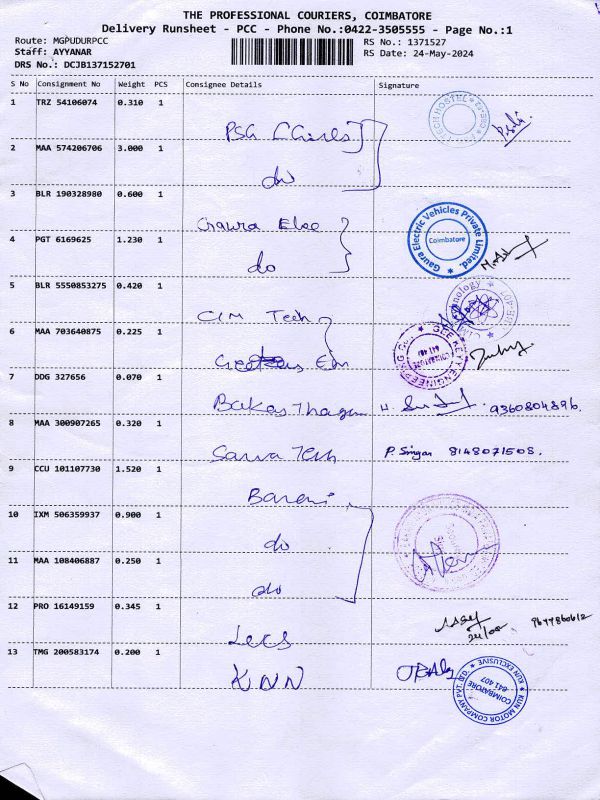 THE PROFESSIONAL COURIERS, COIMBATORE
Delivery Runsheet - PCC - Phone No.:0422-3505555 - Page No.:1
Route: MGPUDURPCC
Staff: AYYANAR
DRS No.: DCJB137152701
RS No.: 1371527
RS Date: 24-May-2024
S No Consignment No Weight PCS Consignee Details Signature
1 TRZ 54106074 0.310 1 PSG [Girls]
TECH HOSTEL
2 MAA 574206706 3.000 1 do
3 BLR 190328980 0.600 1 Gaura Elec
Gaura Electric Vehicles Private Limited.
Coimbatore
4 PGT 6169625 1.230 1 do
5 BLR 5550853275 0.420 1 CIM Tech
6 MAA 703640875 0.225 1
GEE KEYY ENGINEERING
COIMBATORE
641 407
7 DDG 327656 0.070 1 9360804896.
8 MAA 300907265 0.320 1 Sarva Tech P. Singan 8148071508.
9 CCU 101107730 1.520 1 Bareni
10 IXM 506359937 0.900 1 do
11 MAA 108406887 0.250 1 do
12 PRO 16149159 0.345 1 Lecs 9677860612
13 TMG 200583174 0.200 1 KNN
KUN MOTOR COMPANY PVT. LTD.
KUN EXCLUSIVE
COIMBATORE
641 407